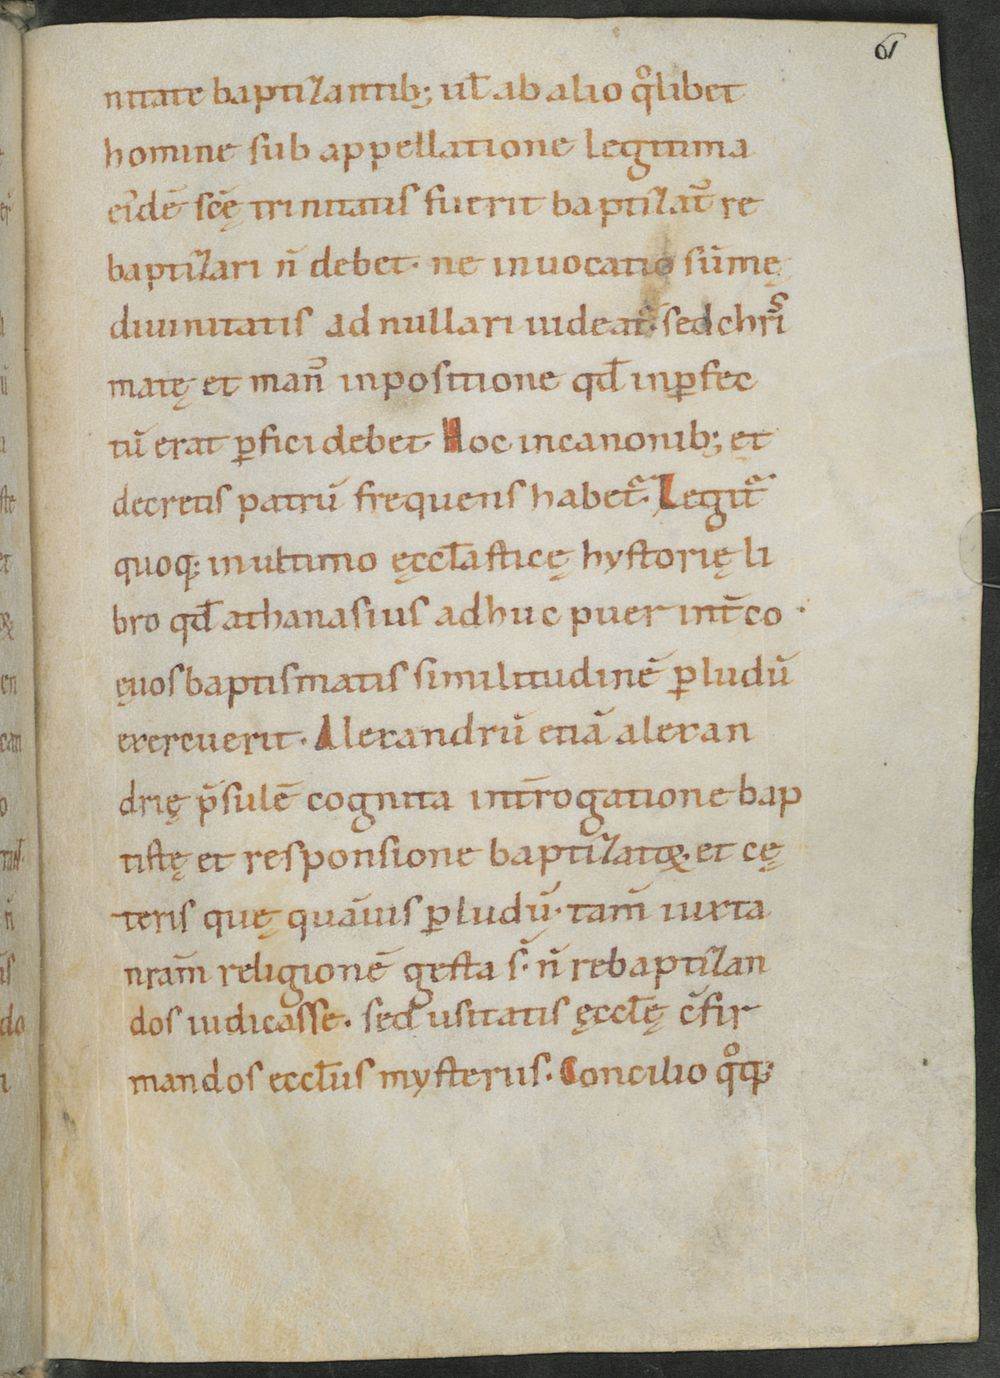 61
nitate baptizantib; ul̄ ab alio qͦlibet
homine sub appellatione legitima
eiͥdē scę̄ trinitatis fuerit baptizat᷒ re
baptizari n̄ debet· ne inuocatio sūmę
diuinitatis adnullari uideat᷑· sed chris
matę et man᷒ inpositione qd̄ inꝑfec
tū erat ꝑfici debet· Hoc incanonib; et
decretis patrū frequens habet᷑. Legit᷑
quoq; inultimo ęccl̄asticę hystorię li
bro qd̄ athanasius adhuc puer int̄ co
ęuos baptismatis similitudinē ꝑ ludū
exercuerit· Alexandrū etiā alexan
drię p̄sulē cognita int̄rogatione bap
tistę et responsione baptizatoꝝ· et cę
teris quę quāuis ꝑ ludū· tam̄ iuxta
nr̄am religionē gesta s̄· n̄ rebaptizan
dos iudicasse· sed usitatis ęccl̄ę c̄fir
mandos eccl̄iis mysteriis· Concilio qͦq;